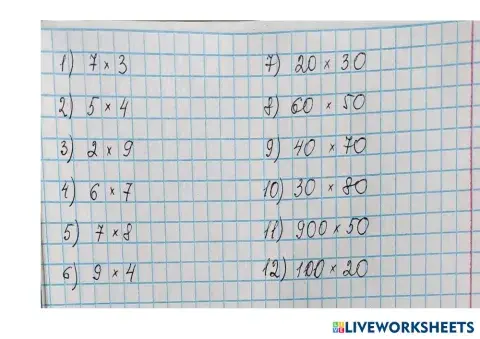 1) 7 × 3
2) 5 × 4
3) 2 × 9
4) 6 × 7
5) 7 × 8
6) 9 × 4
7) 20 × 30
8) 60 × 50
9) 40 × 70
10) 30 × 80
11) 900 × 50
12) 100 × 20
LIVEWORKSHEETS